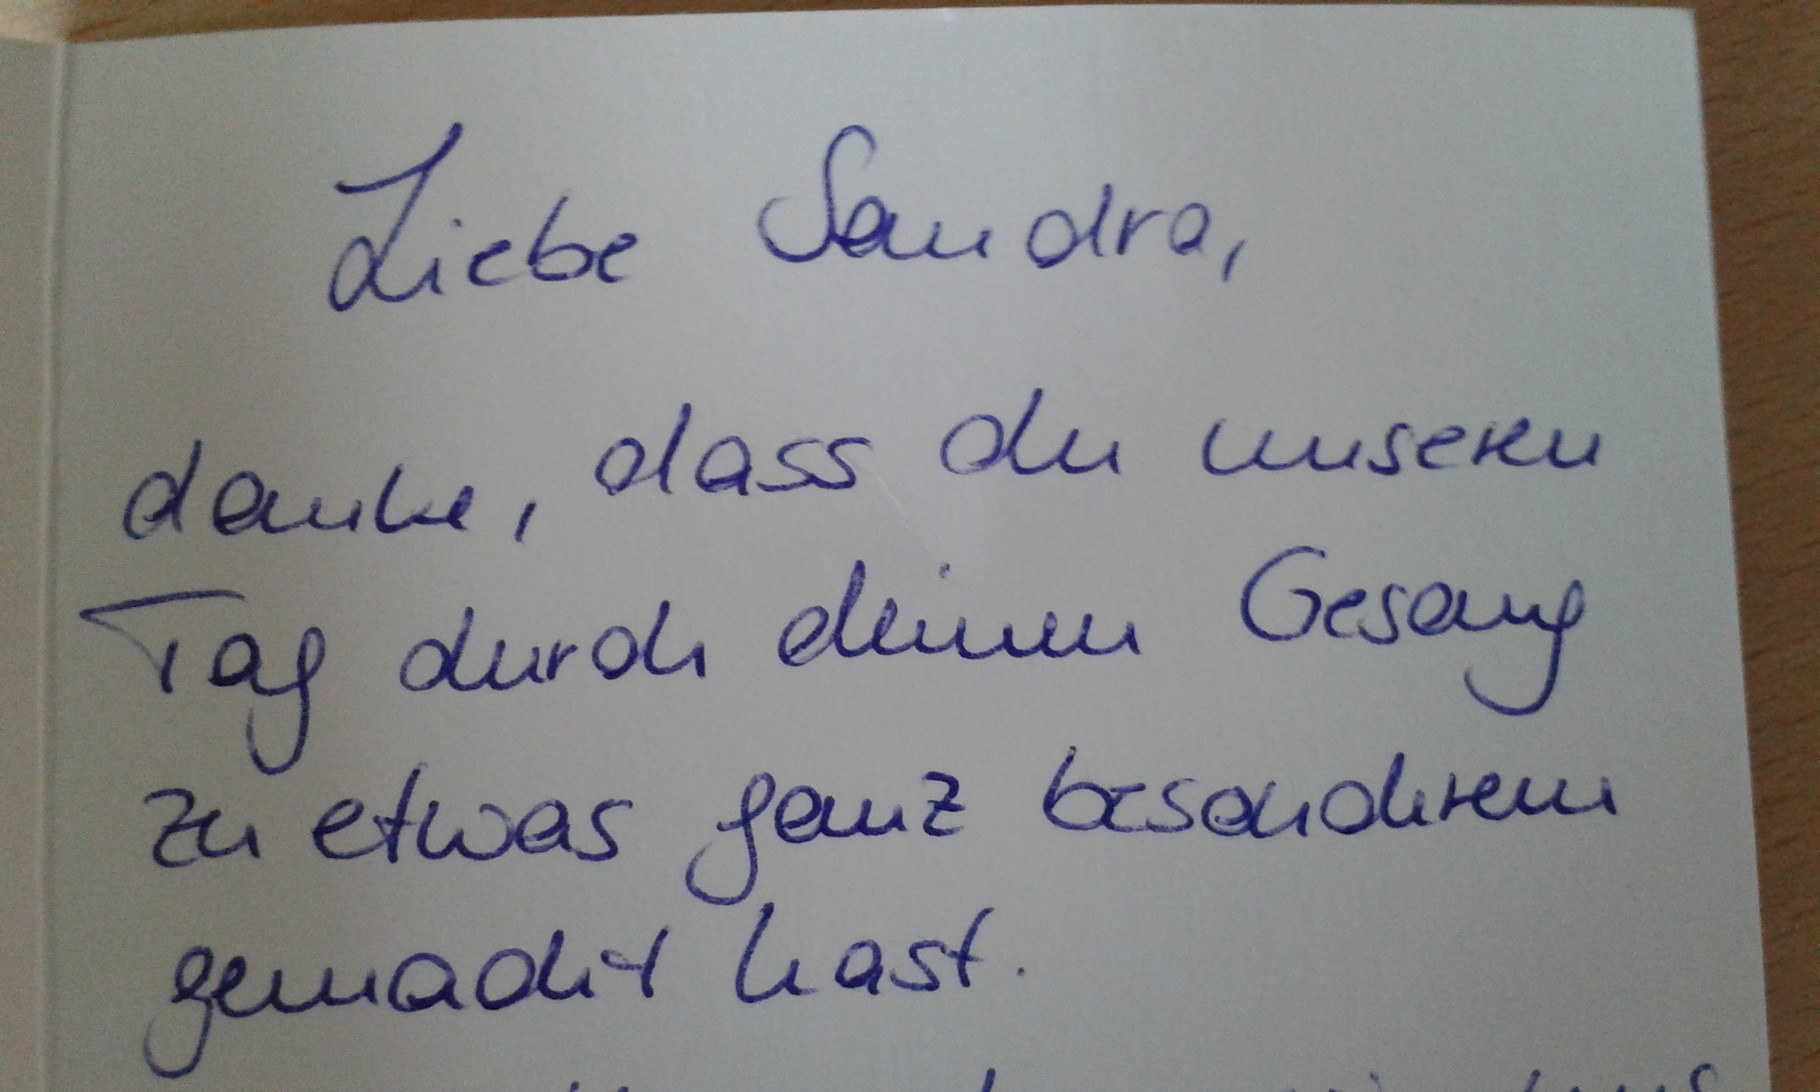 Liebe Sandra,
danke, dass du unseren
Tag durch deinen Gesang
zu etwas ganz besonderem
gemacht hast.